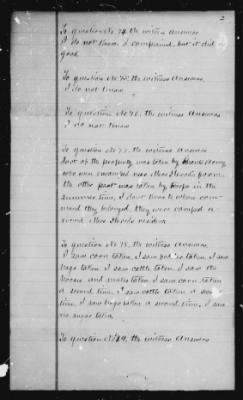 2
To question No 74 the witness answers
I do not know. I complained, but it did
good.
To question No 75, the witness answers
I do not know
To question No 76, the witness answers
I do not know
To question No 77, the witness answers
of the property was taken by
who were encamped near Miss
the other part was taken by troops in the
summer time, I don't know to whose com-
mand they belonged, they were camped a
round Miss
To question No 78, the witness answers
I saw corn taken, I saw taken I saw
hogs taken I saw cattle taken I saw the
horses and mules taken I saw corn taken
a second time, I saw cattle taken a
time, I saw hogs taken a second time, I saw
no sugar taken
To question No 79, the witness answers